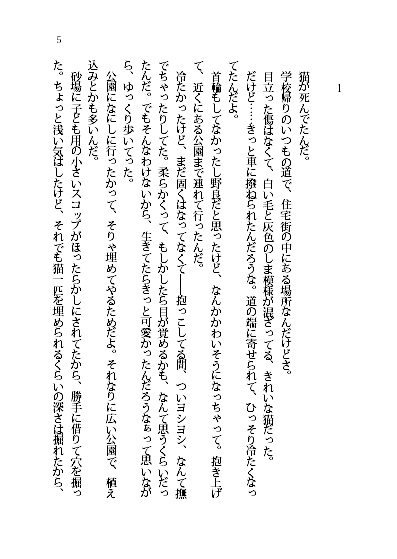 1
猫が死んでたんだ。
学校帰りのいつもの道で、住宅街の中にある場所なんだけどさ。
目立った傷はなくて、白い毛と灰色のしま模様が混ざってる、きれいな猫だった。
だけど……きっと車に撥ねられたんだろうな。道の端に寄せられて、ひっそり冷たくなっ
てたんだよ。
首輪もしてなかったし野良だと思ったけど、なんかかわいそうになっちゃって。抱き上げ
て、近くにある公園まで連れて行ったんだ。
冷たかったけど、まだ固くはなってなくて――抱っこしてる間、ついヨシヨシ、なんて撫
でちゃったりしてた。柔らかくって、もしかしたら目が覚めるかも、なんて思うくらいだっ
たんだ。でもそんなわけないから、生きてたらきっと可愛かったんだろうなぁって思いなが
ら、ゆっくり歩いてった。
公園になにしに行ったかって、そりゃ埋めてやるためだよ。それなりに広い公園で、植え
込みとかも多いんだ。
砂場に子ども用の小さいスコップがほったらかしにされてたから、勝手に借りて穴を掘っ
た。ちょっと浅い気はしたけど、それでも猫一匹を埋められるくらいの深さは掘れたから、
5